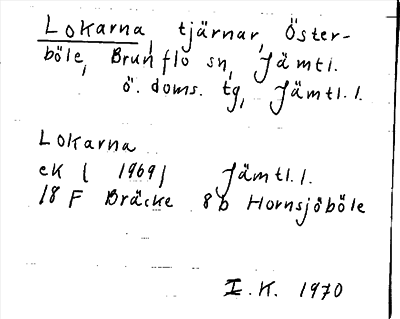 Lokarna, tjärnar, Öster-
böle, Brunflo sn, Jämtl.
ö. doms. tg, Jämtl. l.
Lokarna
ek ( 1969) Jämtl. l.
18 F Bräcke 8b Hornsjöböle
I. K. 1970